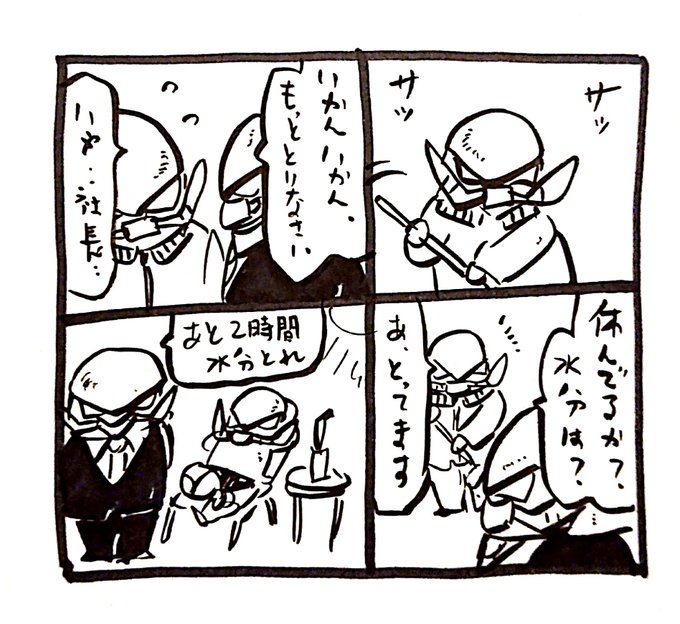 サッ
サッ
休んでるか?
水分は?
あ、とってます
いかんいかん、
もっととりなさい
いや‥社長…
あと2時間
水分とれ